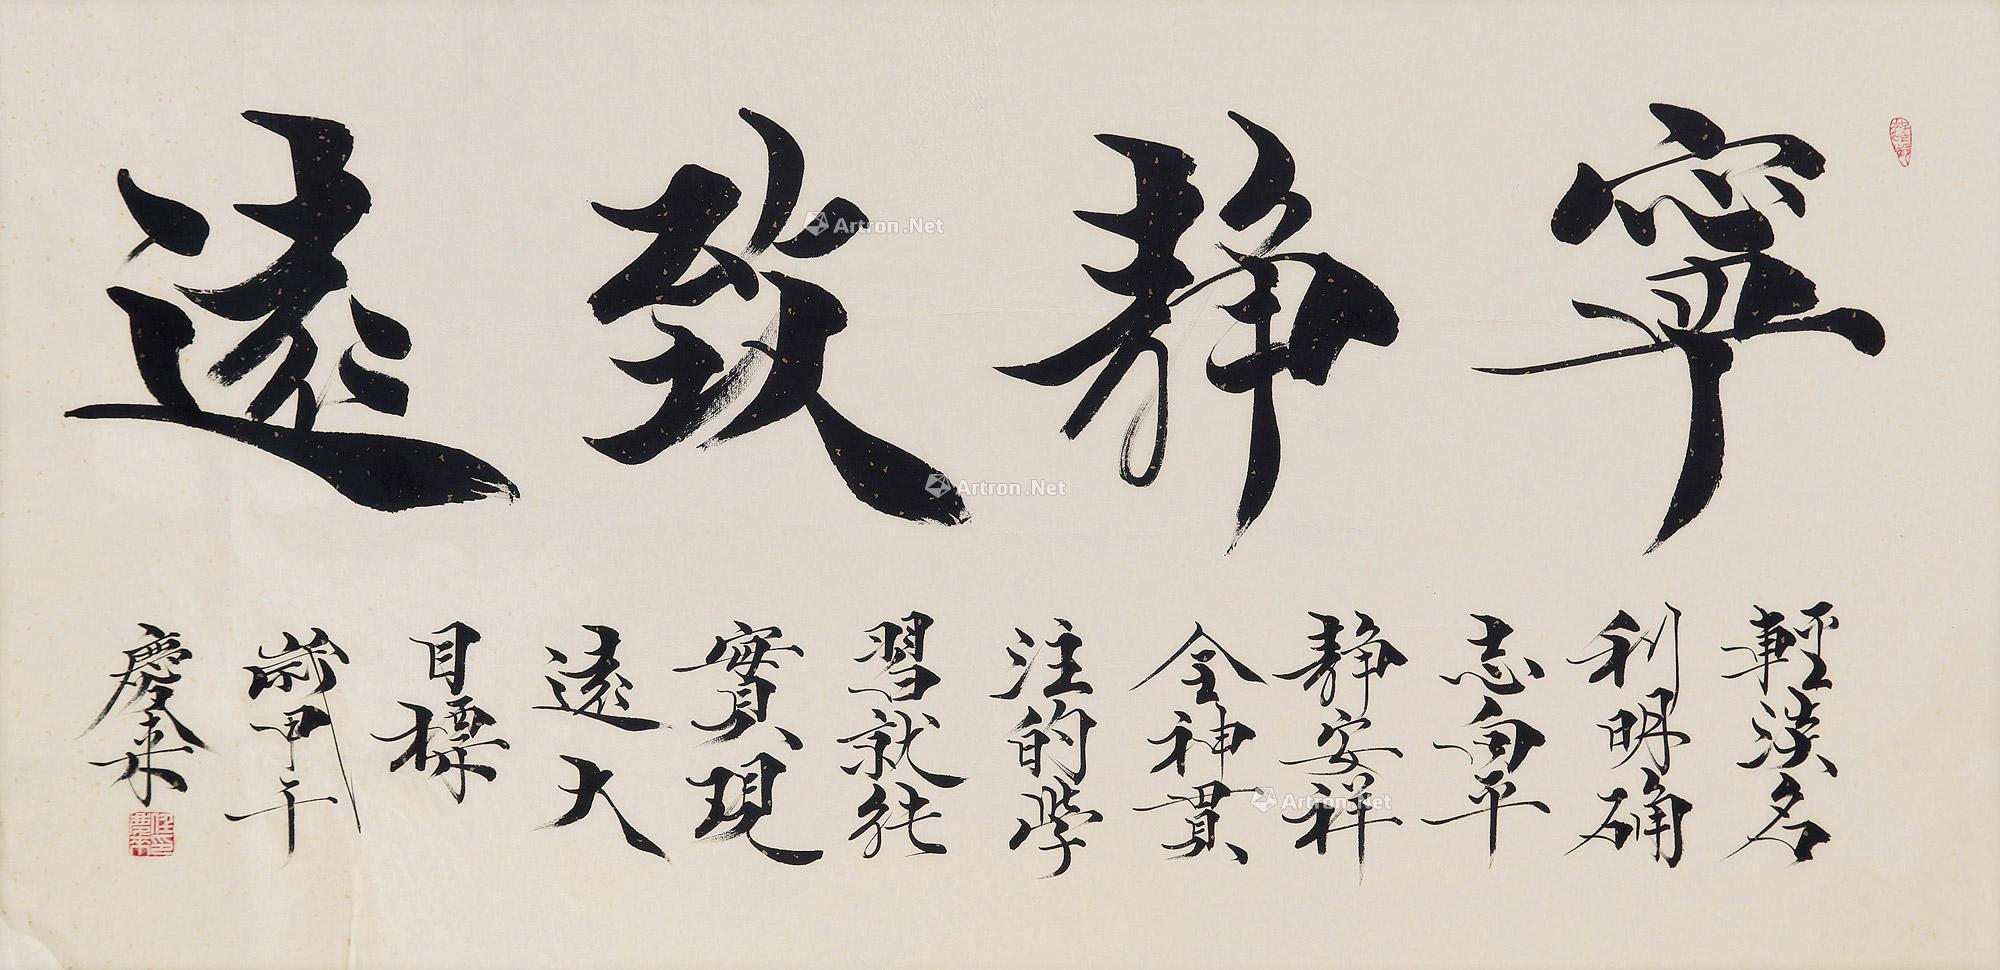 寧靜致遠
輕淡名
利明确
志向平
静安祥
全神貫
注的學
習就能
實現
遠大
目標
歲甲午
慶來
Artron.Net
Artron.Net
Artron.Net